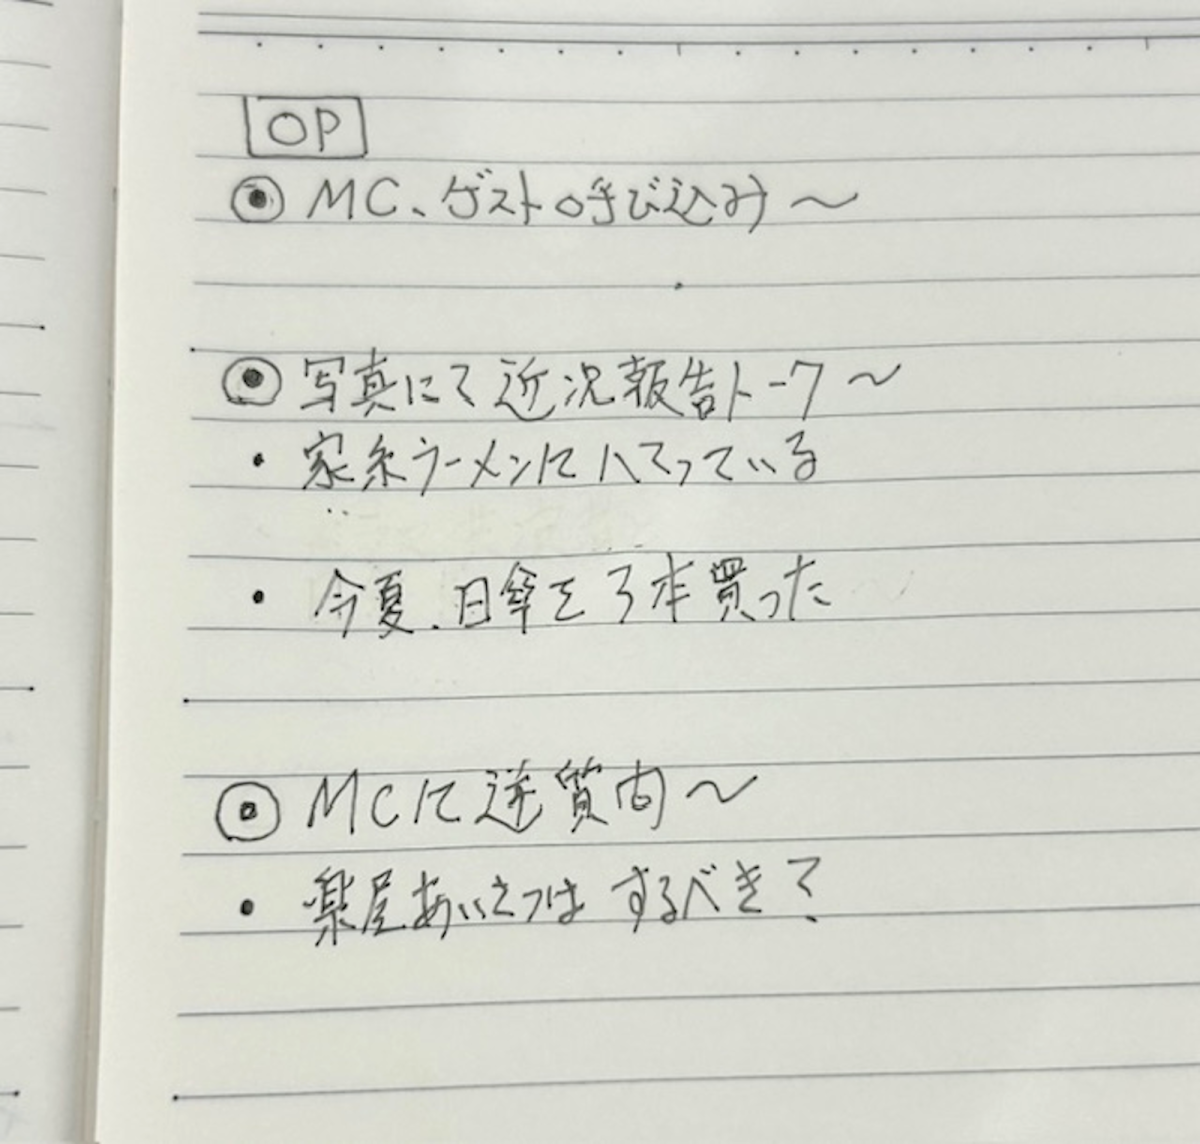 OP
◉ MC、ゲスト呼び込み〜
◉ 写真にて近況報告トーク〜
・ 家系ラーメンにハマっている
・ 今夏、日傘を3本買った
◉ MCに逆質問〜
・ 楽屋あいさつはするべき?